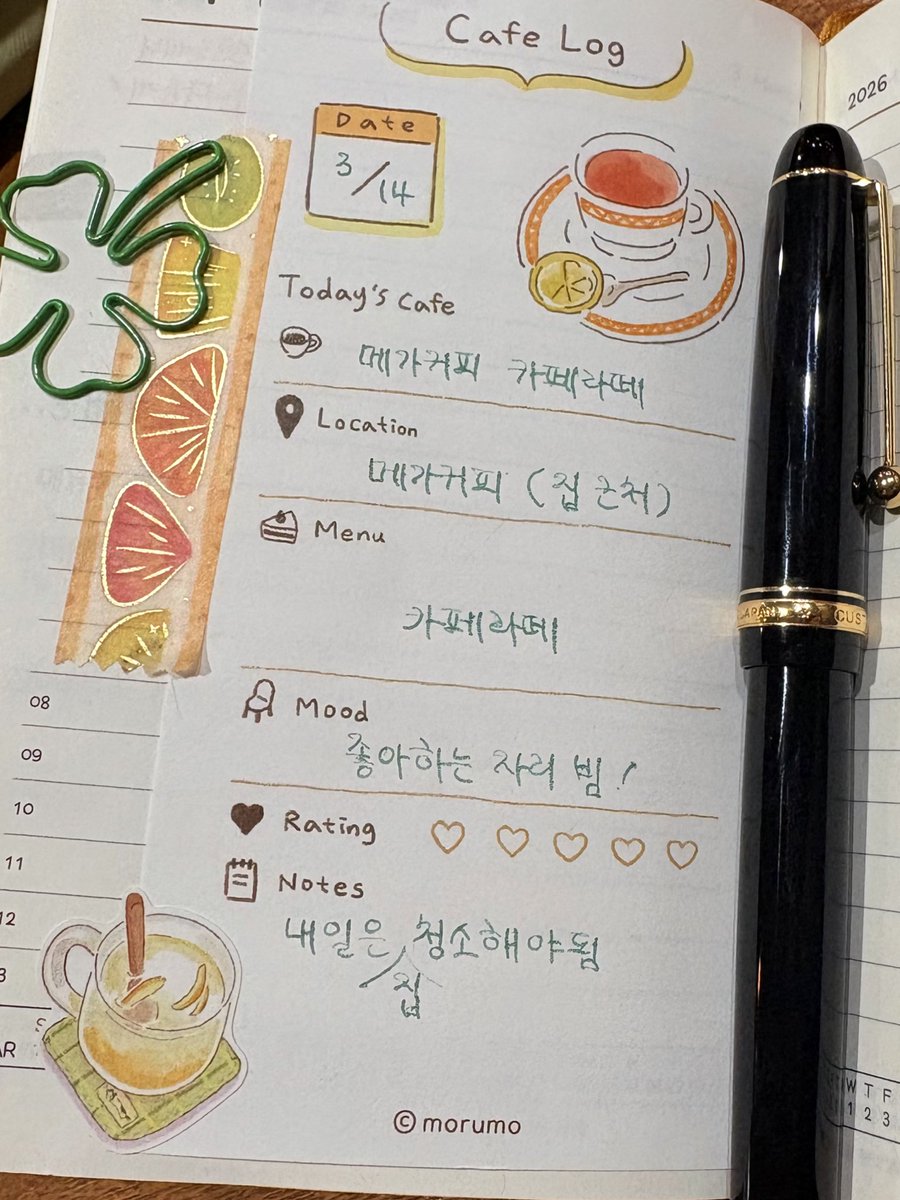 Cafe Log
Date
3/14
Today's Cafe
메가커피 카페라떼
Location
메가커피 (집 근처)
Menu
카페라떼
Mood
좋아하는 자리 빔!
Rating
Notes
내일은 청소해야됨
집
© morumo
08
09
10
11
12
2026
JAPAN CUST
W T F
1 2 3